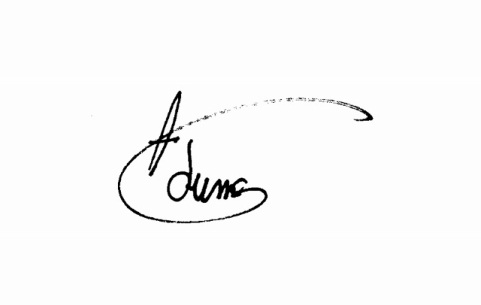 A
duma